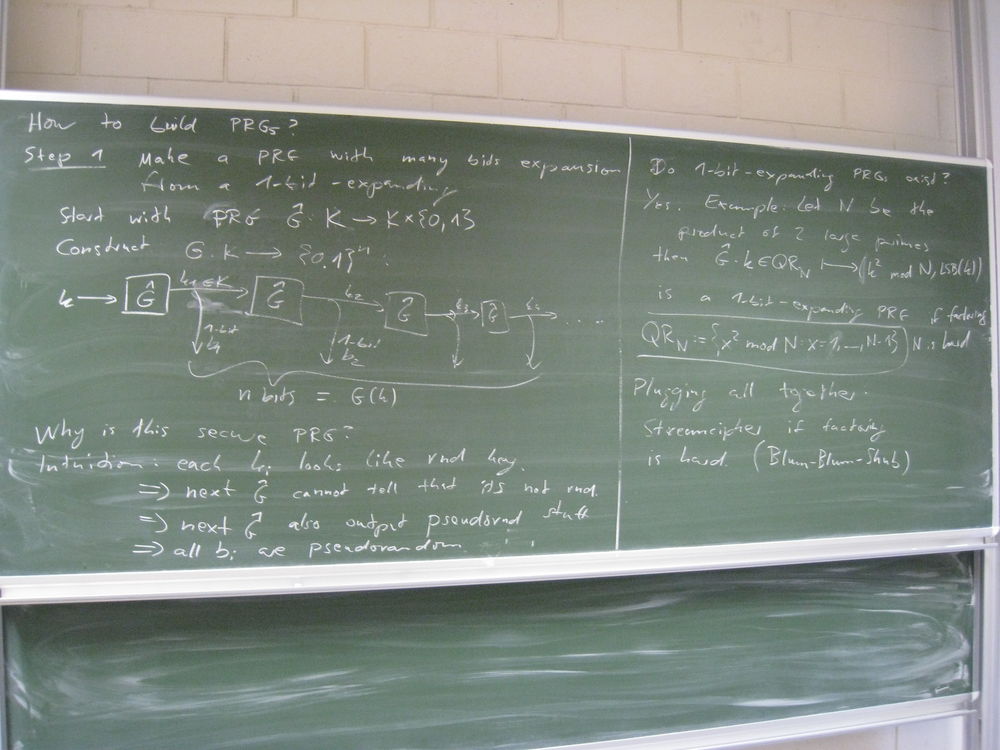 How to build PRGs?
Step 1 Make a PRG with many bids expansion
from a 1-bit-expanding
Start with PRG Ĝ: K → K×{0,1}
Construct G: K → {0,1}ⁿ :
k → Ĝ k₁∈K Ĝ k₂ Ĝ k₃ Ĝ k₄ ....
1-bit b₁ 1-bit b₂
n bits = G(k)
Why is this secure PRG?
Intuition: each kᵢ looks like rnd key.
⇒ next Ĝ cannot tell that it's not rnd.
⇒ next Ĝ also output pseudornd stuff
⇒ all bᵢ are pseudorandom
Do 1-bit-expanding PRGs exist?
Yes. Example: Let N be the
product of 2 large primes
then Ĝ: k∈QR_N ↦ (k² mod N, LSB(k))
is a 1-bit-expanding PRG if factoring
N is hard
QR_N := {x² mod N: x=1,...,N-1}
Plugging all together:
Streamcipher if factoring
is hard. (Blum-Blum-Shub)